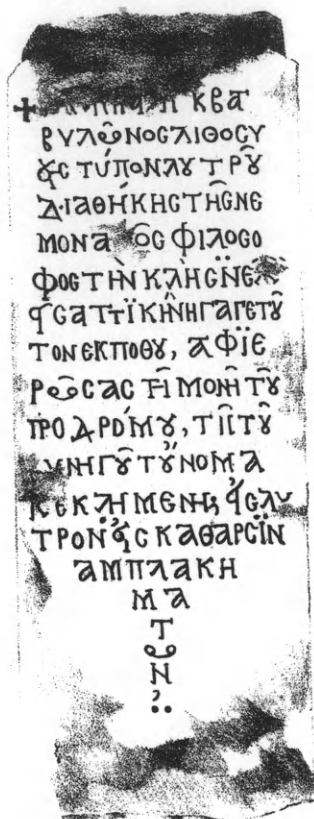 ΚΒΑ
ΒΥΛῶΝΟCΛΙΘΟCΥ
ȣCΤΎΠΟΝΛȣΤΡȣ͂
ΔΙΑΘΉΚΗCΤΗ͂CΝΕ
ΜΟΝΑ ΟC ΦΙΛΟCΟ
ΦΟCΤῊΝΚΛΗ͂CΪΝΕ
ϤCΑΤΤΪΚῊΝΗΓΑΓΕΤȣ͂
ΤΟΝΕΚΠΟΘȣ, ΑΦΪΕ
ΡῶCΑC ΤΗ͂ ΜΟΝΗ͂ Τȣ͂
ΠΡΟΔΡΌΜȣ, ΤΗ͂ Τȣ͂
ΥΝΗΓȣ͂ΤȣΝΟΜΑ
ΚΕΚΛΗΜΕΝΗ, ϤCΛΥ
ΤΡΟΝϤCΚΑΘΑΡCΪΝ
ΑΜΠΛΑΚΗ
ΜΑ
Τ
ω
Ν